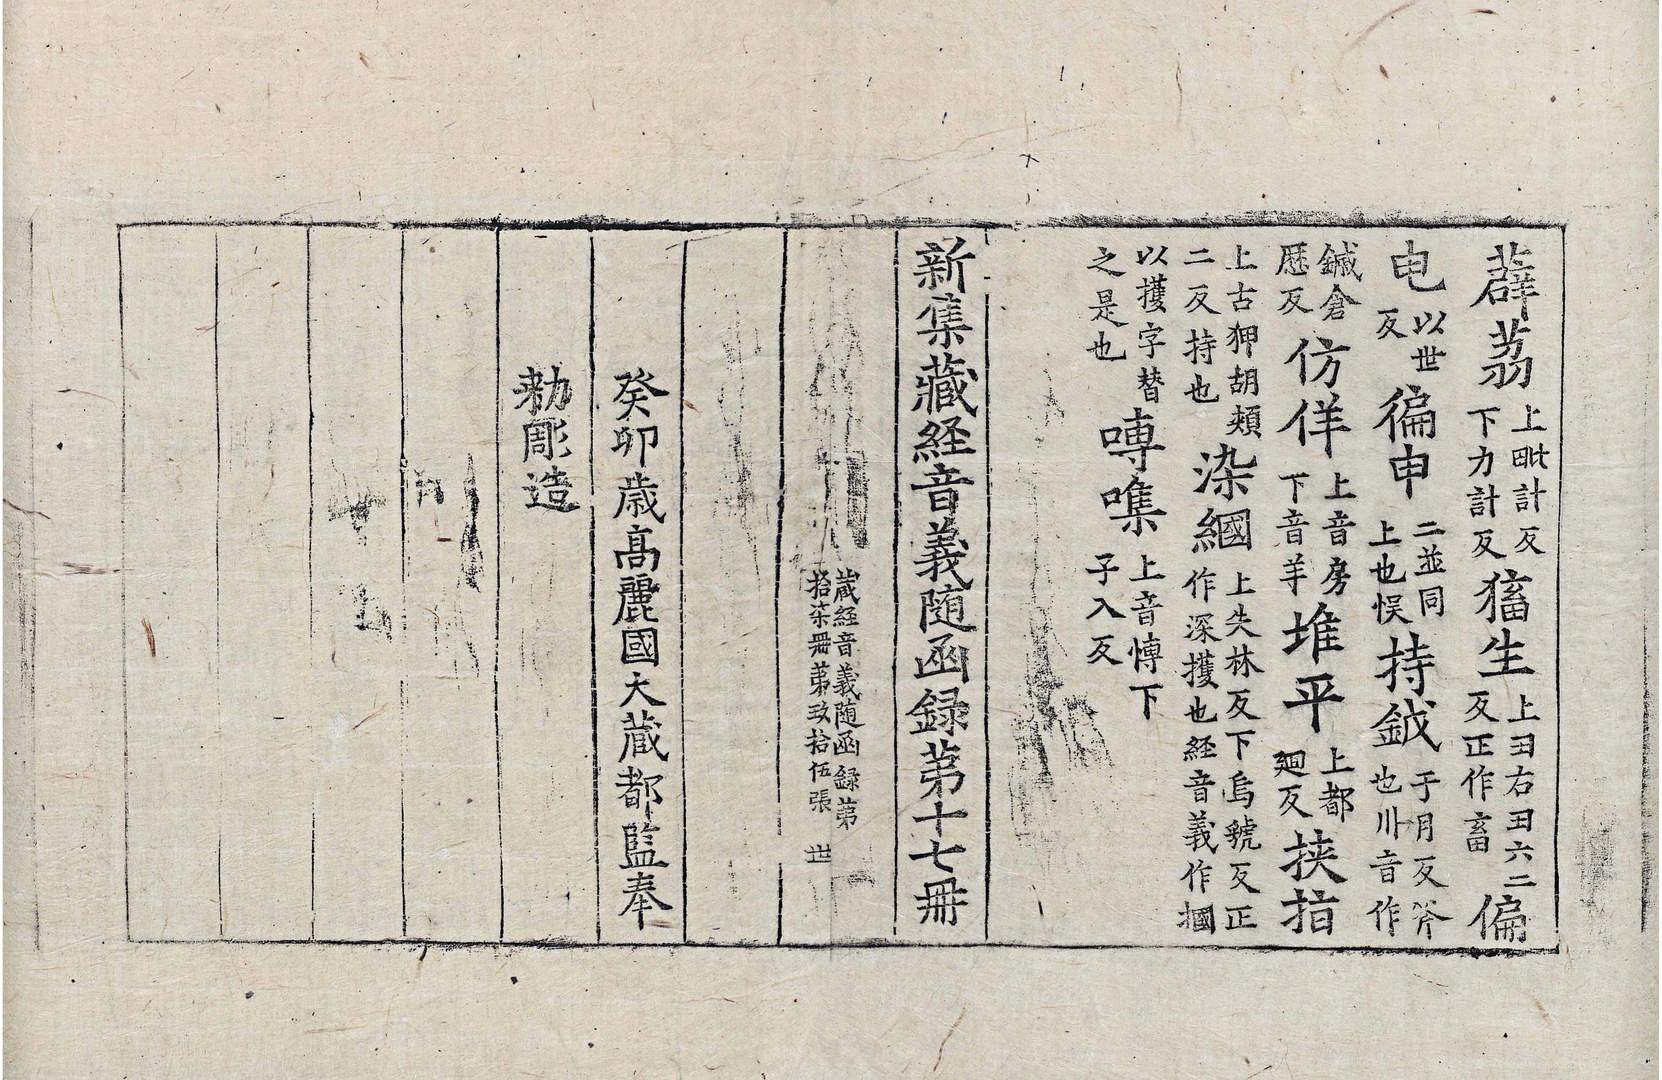 薜荔上毗計反下力計反㹖生上丑右丑六二反正作畜偏
电以世反徧申二並同上也悮持鉞于月反斧也川音作
鏚倉歷反仿佯上音房下音羊堆平上都廻反挾指
上古狎胡頰二反持也染㶟上失林反下烏虢反正作深擭也経音義作摑
以擭字替之是也嚩噍上音愽下子入反
新集藏経音義随函録苐十七冊
藏経音義随函録苐拾柒冊苐玖拾伍張 世
癸卯歳髙麗國大蔵都監奉
勑彫造